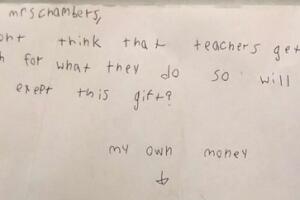 mrs chambers,
ont think that teachers get
h for what they do so will
exept this gift?
my own money